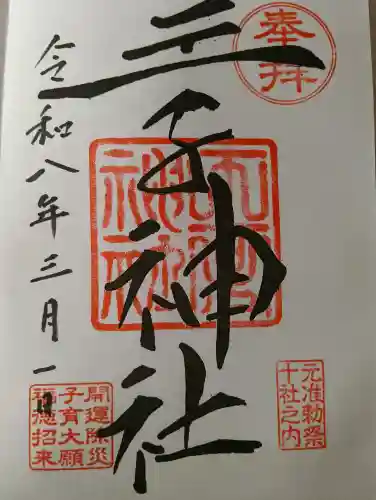 奉拝
王子神社
元准勅祭
十社之内
令和八年三月一日
開運除災
子育大願
福徳招来